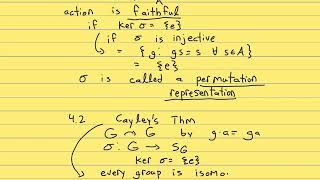 action is faithful
if ker σ = {e}
if σ is injective
= {g: gs = s ∀ s∈A}
= {e}
σ is called a permutation
representation
4.2 Cayley's Thm
G ↷ G by g·a = ga
σ: G → S_G
ker σ = {e}
every group is isomo.